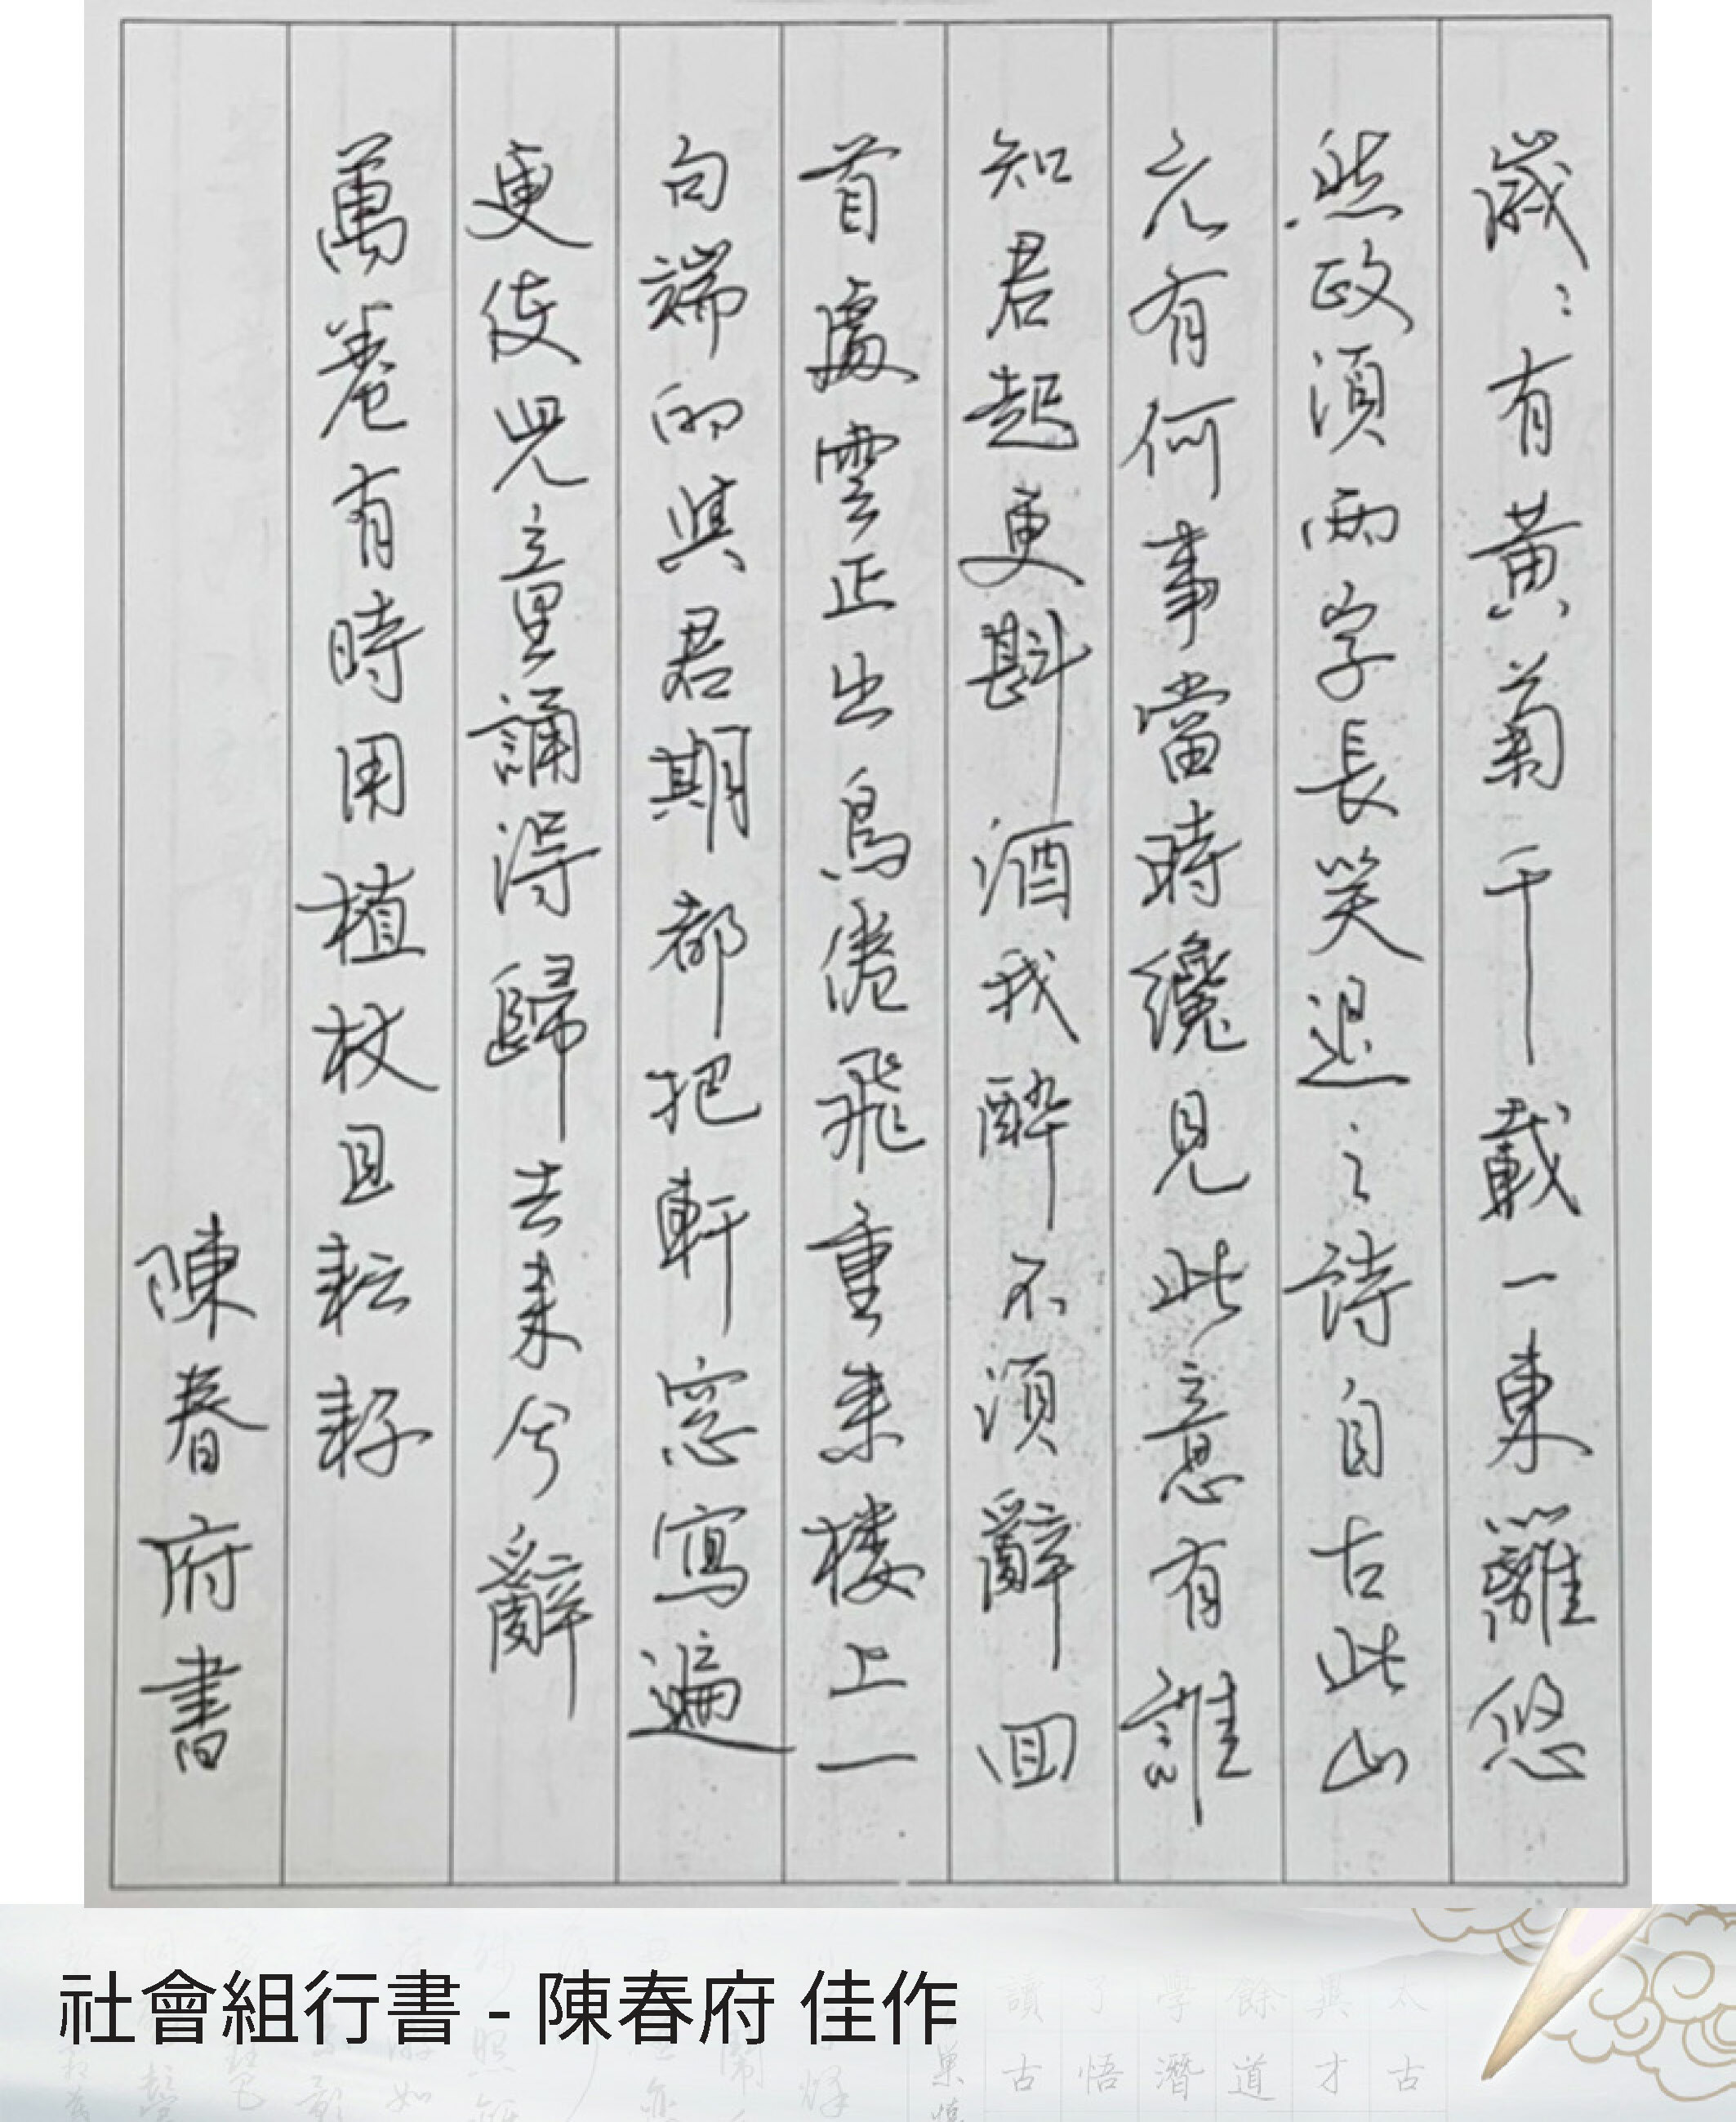 歲ㄑ有黃菊千載一東籬悠
然政須兩字長笑退之詩自古此山
元有何事當時纔見此意有誰
知君起更斟酒我醉不須辭回
首處雲正出鳥倦飛重来楼上一
句端的與君期都把軒窓寫遍
更使兒童誦得歸去来兮辭
萬卷有時用植杖且耘耔
陳春府書
社會組行書 - 陳春府 佳作